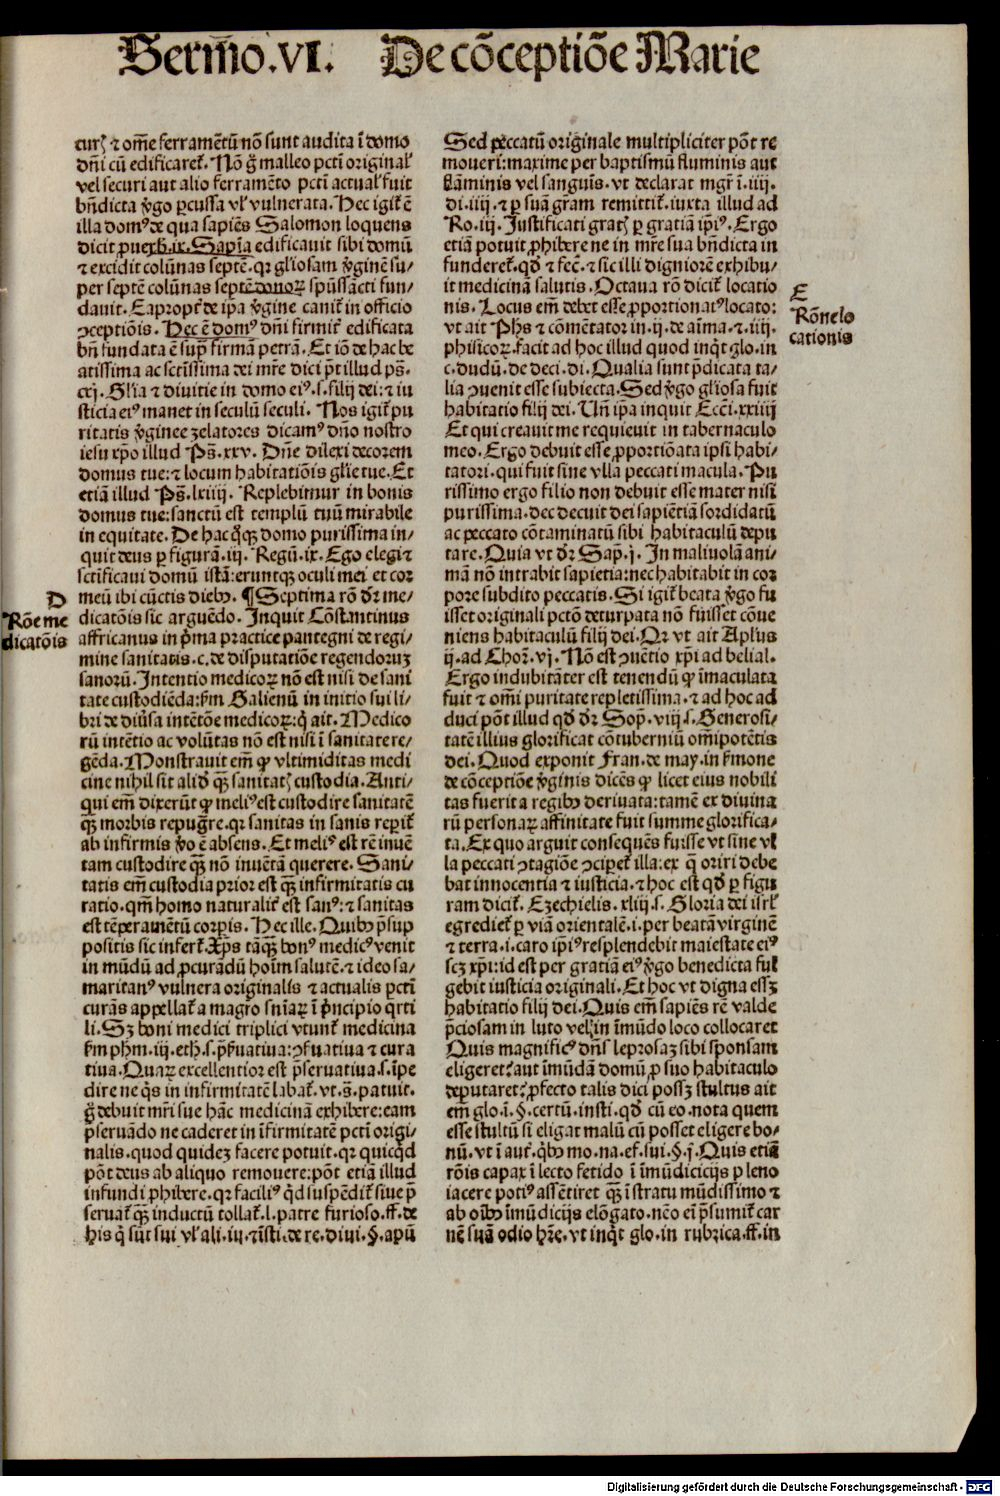 Sermo.VI. De cōceptiōe Marie
curꝭ ⁊ om̄e ferramētū nō sunt audita ī domo
dn̄i cū edificaret᷑. Nō g̊ malleo pctī original'
vel securi aut alio ferramēto pctī actual' fuit
bn̄dicta v̓go ꝑcussa vl' vulnerata. Hec igit᷑ ē
illa domꝰ de qua sapiēs Salomon loquens
dicit ꝓuerb̄.ix. Sapīa edificauit sibi domū
⁊ excidit colūnas septē. qꝛ gl'iosam v̓ginē su/
per septē colūnas septē donoꝝ spūssācti fun/
dauit. Eapropt̓ de ip̄a v̓gine canit᷑ in officio
ꝯceptiōis. Hec ē domꝰ dn̄i firmit̓ edificata
bn̄ fundata ē sup̄ firmā petrā. Et iō de hac be
atissima ac sctīssima dei mr̄e dici pt̄ illud ps̄.
cxj. Gl'ia ⁊ diuitie in domo eiꝰ.s.filij dei: ⁊ iu
sticia eiꝰ manet in seculū seculi. Nos igit᷑ pu
ritatis v̓ginee zelatores dicamꝰ dn̄o nostro
iesu xp̄o illud Ps̄.xxv. Dn̄e dilexi decorem
domus tue: ⁊ locum habitatiōis gl'ie tue. Et
etiā illud Ps̄.lxiiij. Replebimur in bonis
domus tue: sanctū est templū tuū mirabile
in equitate. De hac q̊ꝙ domo purissima in/
quit deus ꝑ figurā.iij. Regū.ix. Ego elegi ⁊
sctīficaui domū istā: eruntqꝫ oculi mei et cor
meū ibi cūctis diebꝰ. ¶ Septima rō dr̄ me/
D
Rōe me
dicatōis
dicatōis sic arguēdo. Inquit Cōstantinus
affricanus in p̓ma practice pantegni de regi/
mine sanitatis.c.de disputatiōe regendoruꝫ
sanorū. Intentio medicoꝝ nō est nisi de sani
tate custodiēda: ẜm Galienū in initio sui li/
bri de diūsa intētōe medicoꝝ: q̓ ait. Medico
rū intētio ac volūtas nō est nisi ī sanitate re/
gēda. Monstrauit em̄ ꝙ vltimiditas medi
cine nihil sit aliđ qꝫ̄ sanitatꝭ custodia. Anti/
qui em̄ dixerūt ꝙ meliꝰ est custodire sanitatē
qꝫ̄ morbis repugn̄re. qꝛ sanitas in sanis reꝑit᷑
ab infirmis v̓o ē absens. Et meliꝰ est rē inuē
tam custodire qꝫ̄ nō inuētā querere. Sani/
tatis em̄ custodia prior est qꝫ̄ infirmitatis cu
ratio. qm̄ homo naturalit̓ est sanꝰ: ⁊ sanitas
est tēperamētū corꝑis. Hec ille. Quibꝰ p̄sup
positis sic infert᷑. Xp̄s tāqꝫ̄ bonꝰ medicꝰ venit
in mūdū ad ꝓcurādū hoīm salutē. ⁊ ideo sa/
maritanꝰ vulnera originalis ⁊ actualis pctī
curās appellat᷑ a magro sn̄iaꝝ ī p̓ncipio qrti
li. Sꝫ boni medici triplici vtunt᷑ medicina
ẜm phm̄.iij.eth.s.p̄ẜuatiua: ꝯẜuatiua ⁊ cura
tiua. Quaꝝ excellentior est p̄seruatiua.s.īpe
dire ne q̓s in infirmitatē labat᷑. vt.s̄.patuit.
g̊ debuit mr̄i sue hāc medicinā exhibere: eam
p̄seruādo ne caderet in īfirmitatē pctī origi/
nalis. quod quideꝫ facere potuit. qꝛ quicqđ
pōt deus ab aliquo remouere: pōt etiā illud
infundi ꝓhibere. qꝛ faciliꝰ qđ suspēdit᷑ siue p̄
seruat᷑ qꝫ̄ inductū tollat᷑.l.patre furioso.ff.de
his q̓ sūt sui vl' ali.iu. ⁊ īsti.de re.diui.§.apū
Sed peccatū originale multipliciter pōt re
moueri: maxime per baptismū fluminis aut
flaminis vel sanguīs. vt declarat mgr̄ ī.iiij.
di.iiij. ⁊ ꝑ suā gram remittit᷑. iuxta illud ad
Ro.iij. Justificati gratꝭ ꝑ gratiā ip̄iꝰ. Ergo
etiā potuit ꝓhibere ne in mr̄e sua bn̄dicta in
funderet᷑. qđ ⁊ fec̄. ⁊ sic illi digniorē exhibu/
it medicinā salutis. Octaua rō dicit᷑ locatio
E
Rōne lo
cationis
nis. Locus em̄ debet esse ꝓportionatꝰ locato:
vt ait Phs̄ ⁊ cōmētator in.ij.de aīma. ⁊.iiij.
phisicoꝝ. facit ad hoc illud quod inq̓t glo.in
c.dudū.de deci.di. Qualia sunt p̄dicata ta/
lia ꝯuenit esse subiecta. Sed v̓go gl'iosa fuit
habitatio filij dei. Un̄ ip̄a inquit Eccī.xxiiij
Et qui creauit me requieuit in tabernaculo
meo. Ergo debuit esse ꝓportiōata ipsi habi/
tatori. qui fuit sine vlla peccati macula. Pu
rissimo ergo filio non debuit esse mater nisi
purissima. dec decuit dei sapiētiā sordidatū
ac peccato cōtaminatū sibi habitaculū depu
tare. Quia vt dr̄ Sap̄.j. In maliuolā ani/
mā nō intrabit sapiētia: nec habitabit in cor
pore subdito peccatis. Si igit᷑ beata v̓go fu
isset originali pctō deturpata nō fuisset cōue
niens habitaculū filij dei. Qꝛ vt ait Apl̄us
ij.ad Chor̄.vj. Nō est ꝯuētio xp̄i ad belial.
Ergo indubitāter est tenendū ꝙ īmaculata
fuit ⁊ om̄i puritate repletissima. ⁊ ad hoc ad
duci pōt illud qđ dr̄ Sap̄.viij.s. Generosi/
tatē illius glorificat cōtuberniū om̄ipotētis
dei. Quod exponit Fran.de may.in ẜmone
de cōceptiōe v̓ginis dicēs ꝙ licet eius nobili
tas fuerit a regibꝰ deriuata: tamē ex diuina
rū personaꝝ affinitate fuit summe glorifica/
ta. Ex quo arguit consequēs fuisse vt sine vl'
la peccati ꝯtagiōe ꝯciꝑet᷑ illa: ex q̄ oriri debe
bat innocentia ⁊ iusticia. ⁊ hoc est qđ ꝑ figu
ram dicit᷑. Ezechielis.xliij.s. Gloria dei isrl'
egrediet᷑ ꝑ viā orientalē.i.per beatā virginē
⁊ terra.i.caro ip̄iꝰ resplendebit maiestate eiꝰ
scꝫ xp̄i: id est per gratiā eiꝰ v̓go benedicta ful
gebit iusticia originali. Et hoc vt digna essꝫ
habitatio filij dei. Quis em̄ sapiēs rē valde
p̄ciosam in luto vel in īmūdo loco collocaret
Quis magnificꝰ dn̄s leprosaꝫ sibi sponsam
eligeret? aut īmūdā domū ꝓ suo habitaculo
deputaret? ꝓfecto talis dici possꝫ stultus ait
em̄ glo.ī.§.certū.insti. qđ cū eo.nota quem
esse stultū si eligat malū cū posset eligere bo/
nū. vt ī aut̓.q̓bꝰ mo.na.ef.sui.§.j. Quis etiā
rōis capax ī lecto fetido ī īmūdicicijs pleno
iacere potiꝰ assētiret qꝫ̄ ī stratu mūdissimo ⁊
ab oībꝰ īmūdicijs elōgato. nēo ei p̄sumit᷑ car
nē suā odio hr̄e. vt inq̓t glo.in rubrica.ff.in
Digitalisierung gefördert durch die Deutsche Forschungsgemeinschaft - DFG